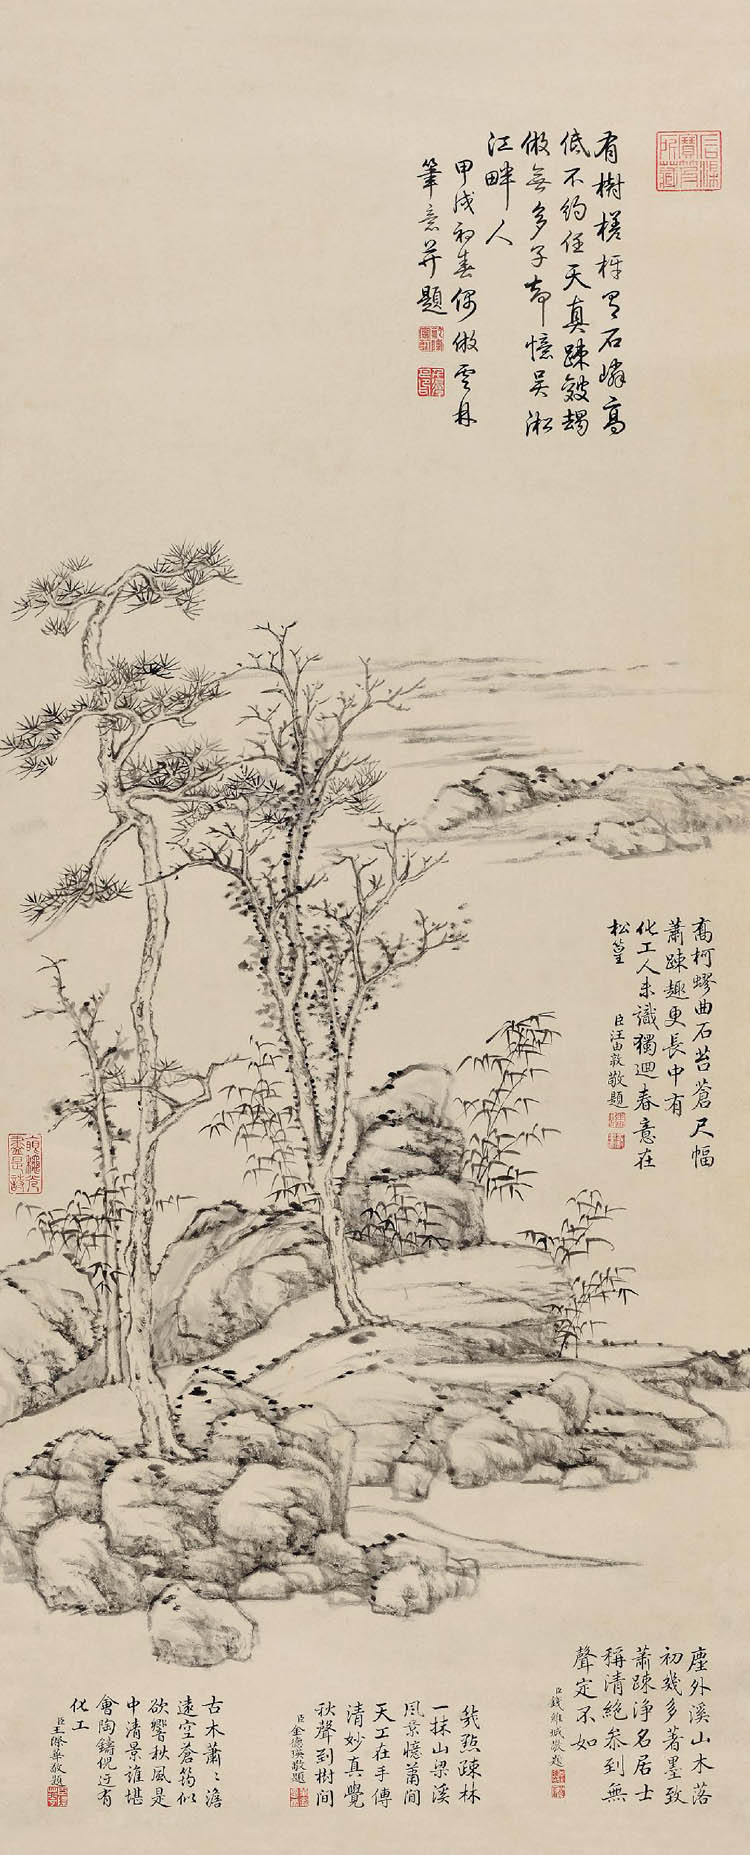 有樹槎枒有石嶙高
低不約任天真踈皴
倣無多子却憶吳淞
江畔人
甲戌初春偶倣雲林
筆意并題
喬柯蟉曲石苔蒼尺幅
蕭踈趣更長中有
化工人未識獨迴春意在
松篁
臣汪由敦敬題
塵外溪山木落
初幾多著墨致
蕭踈淨名居士
稱清絕參到無
聲定不如
臣錢維城敬題
幾點疎林
一抹山梁溪
風景憶蕭閒
天工在手傳
清妙真覺
秋聲到樹間
臣金德瑛敬題
古木蕭蕭澹
遠空蒼筠似
欲響秋風是
中清景誰堪
會陶鑄倪迂有
化工
臣王際華敬題